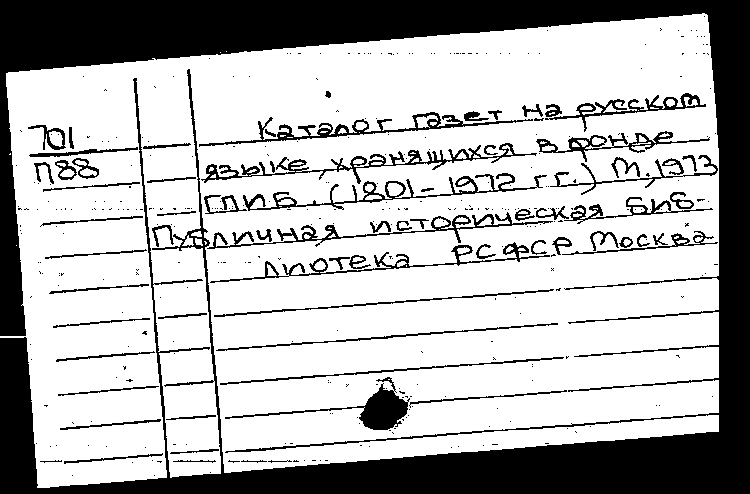 701
П88
Каталог газет на русском
языке, хранящихся в фонде
ГПИБ. (1801-1972 гг.) М., 1973
Публичная историческая биб-
лиотека РСФСР. Москва